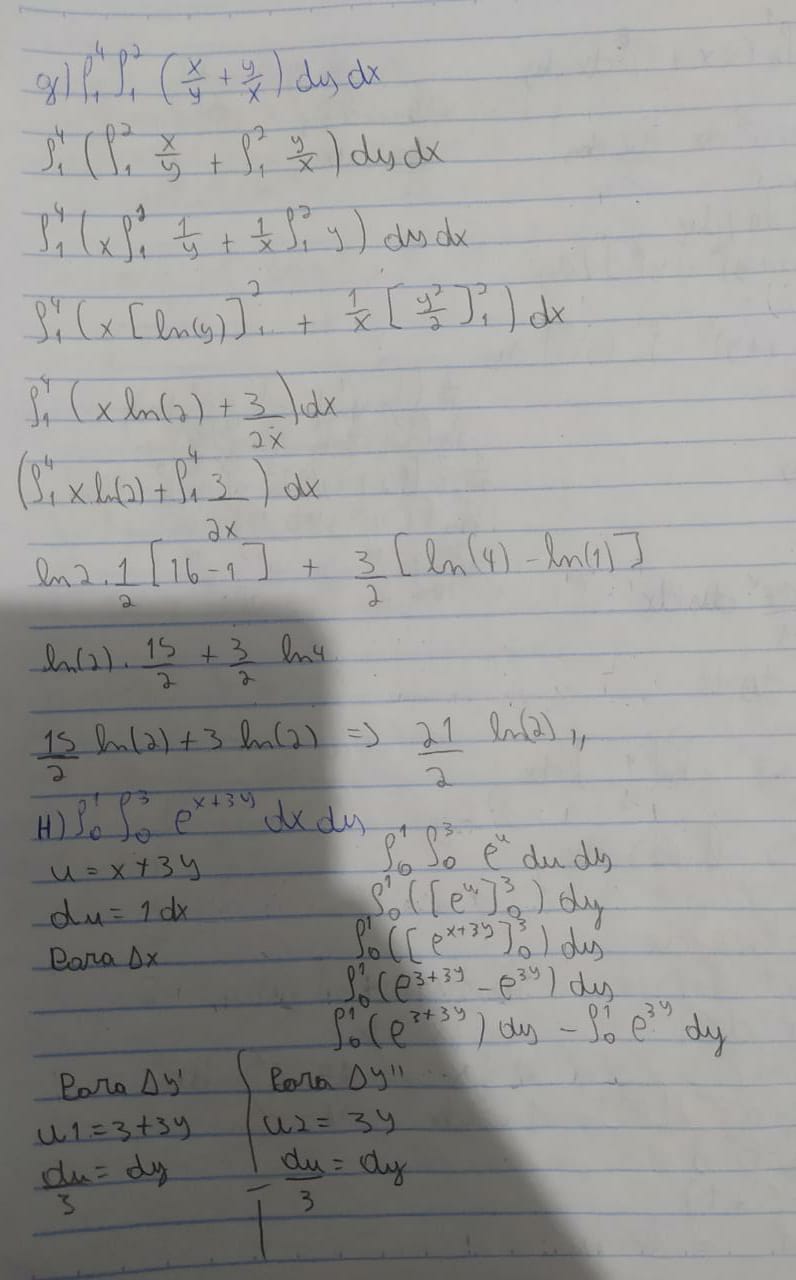 g) ∫₁⁴ ∫₁² (x/y + y/x) dy dx
∫₁⁴ (∫₁² x/y + ∫₁² y/x) dy dx
∫₁⁴ (x ∫₁² 1/y + 1/x ∫₁² y) dy dx
∫₁⁴ (x [ln(y)]₁² + 1/x [y²/2]₁²) dx
∫₁⁴ (x ln(2) + 3/2x) dx
(∫₁⁴ x ln(2) + ∫₁⁴ 3/2x) dx
ln2 . 1/2 [16 - 1] + 3/2 [ln(4) - ln(1)]
ln(2) . 15/2 + 3/2 ln4
15/2 ln(2) + 3 ln(2) => 21/2 ln(2) //
H) ∫₀¹ ∫₀³ e^(x+3y) dx dy
u = x + 3y
du = 1dx
Para Δx
∫₀¹ ∫₀³ e^u du dy
∫₀¹ ([e^u]₀³) dy
∫₀¹ ([e^(x+3y)]₀³) dy
∫₀¹ (e^(3+3y) - e^(3y)) dy
∫₀¹ (e^(3+3y)) dy - ∫₀¹ e^(3y) dy
Para Δy'
u1 = 3 + 3y
du/3 = dy
Para Δy''
u2 = 3y
du/3 = dy